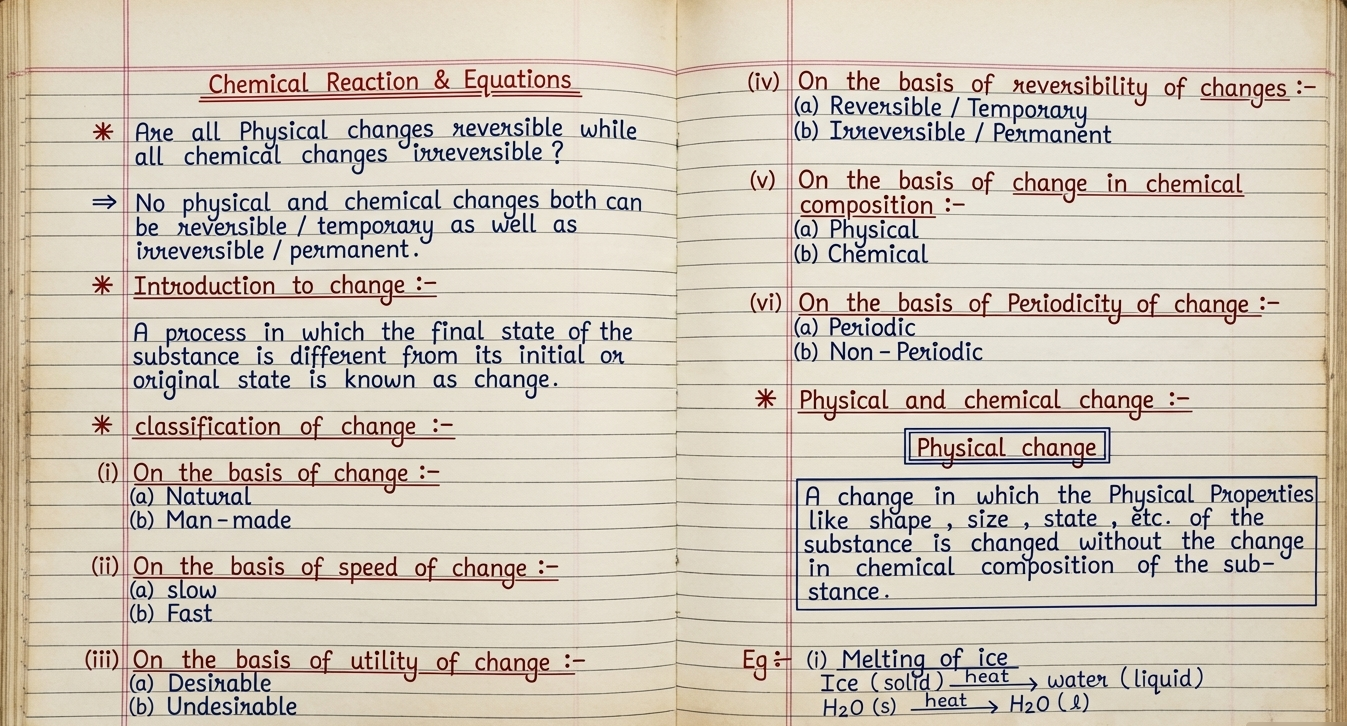 Chemical Reaction & Equations
* Are all Physical changes reversible while
all chemical changes irreversible ?
⇒ No physical and chemical changes both can
be reversible / temporary as well as
irreversible / permanent.
* Introduction to change :-
A process in which the final state of the
substance is different from its initial or
original state is known as change.
* classification of change :-
(i) On the basis of change :-
(a) Natural
(b) Man-made
(ii) On the basis of speed of change :-
(a) slow
(b) Fast
(iii) On the basis of utility of change :-
(a) Desirable
(b) Undesirable
(iv) On the basis of reversibility of changes :-
(a) Reversible / Temporary
(b) Irreversible / Permanent
(v) On the basis of change in chemical
composition :-
(a) Physical
(b) Chemical
(vi) On the basis of Periodicity of change :-
(a) Periodic
(b) Non-Periodic
* Physical and chemical change :-
Physical change
A change in which the Physical Properties
like shape , size , state , etc. of the
substance is changed without the change
in chemical composition of the sub-
stance.
Eg :- (i) Melting of ice
Ice (solid) heat → water (liquid)
H2O (s) heat → H2O (l)